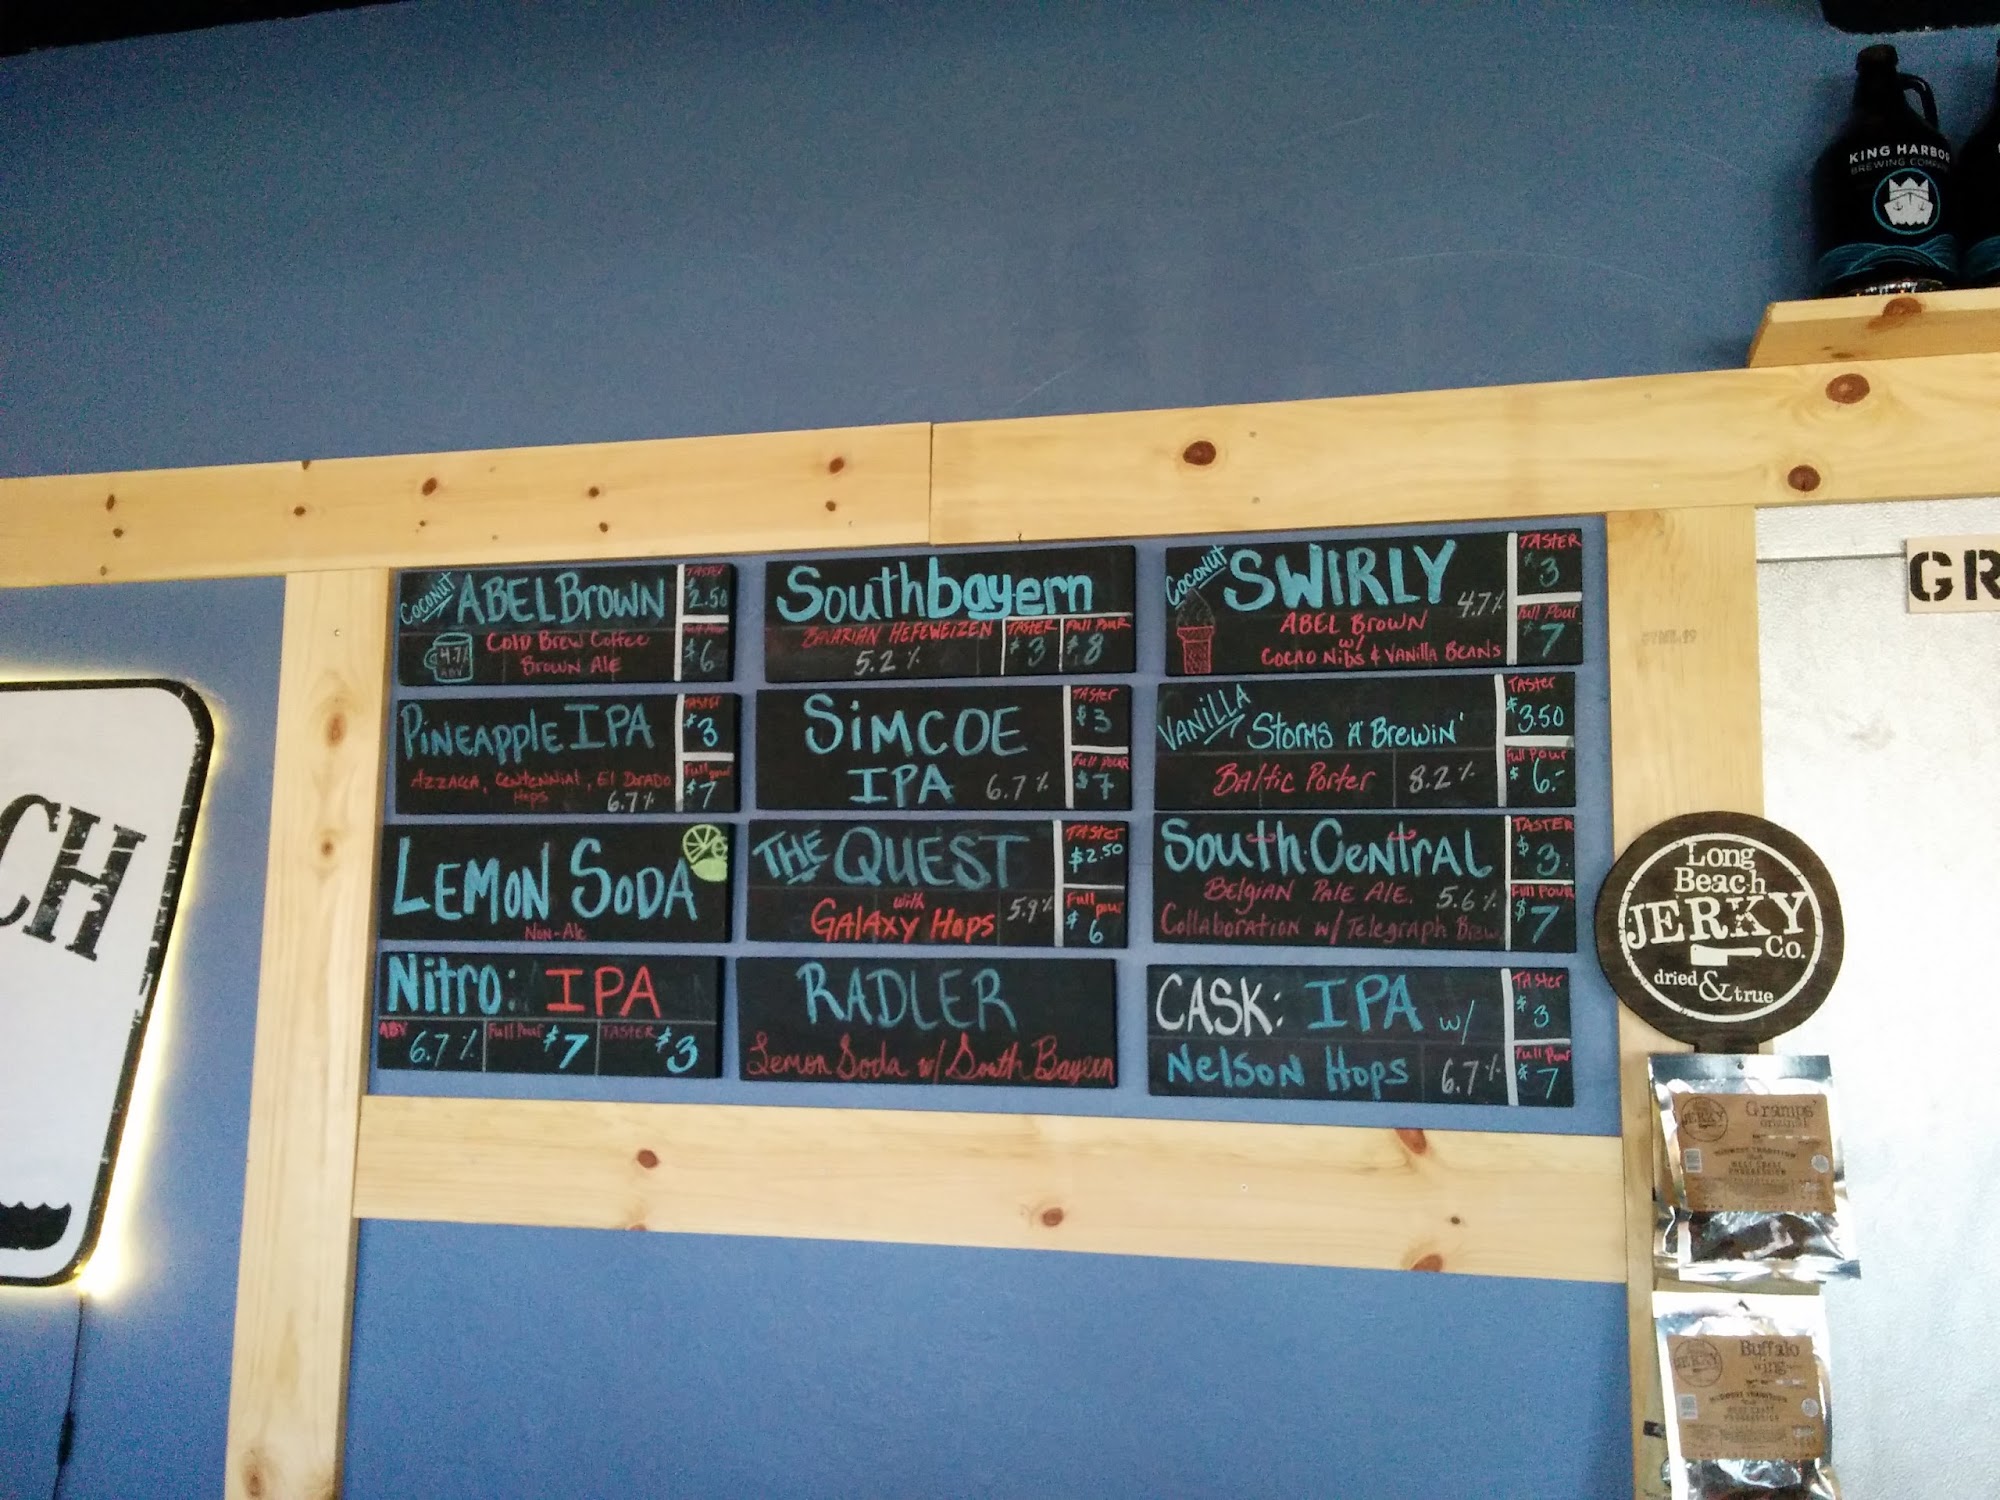 KING HARBOR
BREWING COMPANY
GR
CH
COCONUT
ABEL BROWN
COLD BREW COFFEE
BROWN ALE
4.7%
ABV
TASTER
$2.50
Full Pour
$6
Southbayern
BAVARIAN HEFEWEIZEN
5.2%
TASTER
$3
Full Pour
$8
COCONUT
SWIRLY
4.7%
ABEL BROWN
w/
COCAO NIBS & VANILLA BEANS
TASTER
$3
Full Pour
$7
PINEAPPLE IPA
AZZACCA, CENTENNIAL, El DORADO
Hops
6.7%
TASTER
$3
Full pour
$7
SIMCOE
IPA 6.7%
TASTER
$3
Full POUR
$7
VANILLA
STORMS 'A' BREWIN'
BALTIC PORTER 8.2%
TASTER
$3.50
Full Pour
$6.-
LEMON SODA
NON-Alc
THE QUEST
with
GALAXY HOPS 5.9%
TASTER
$2.50
Full pour
$6
SOUTH CENTRAL
BELGIAN PALE ALE. 5.6%
Collaboration w/ Telegraph Brew.
TASTER
$3.
Full POUR
$7
Nitro: IPA
ABV
6.7%
Full Pour
$7
TASTER
$3
RADLER
Lemon Soda w/ South Bayern
CASK: IPA w/
NELSON HOPS 6.7%
TASTER
$3
Full Pour
$7
Long
Beach
JERKY
Co.
dried & true
JERKY
Gramps'
original
MIDWEST TRADITION
WEST COAST
PROGRESSION
JERKY
Buffalo
wing
MIDWEST TRADITION
WEST COAST
PROGRESSION